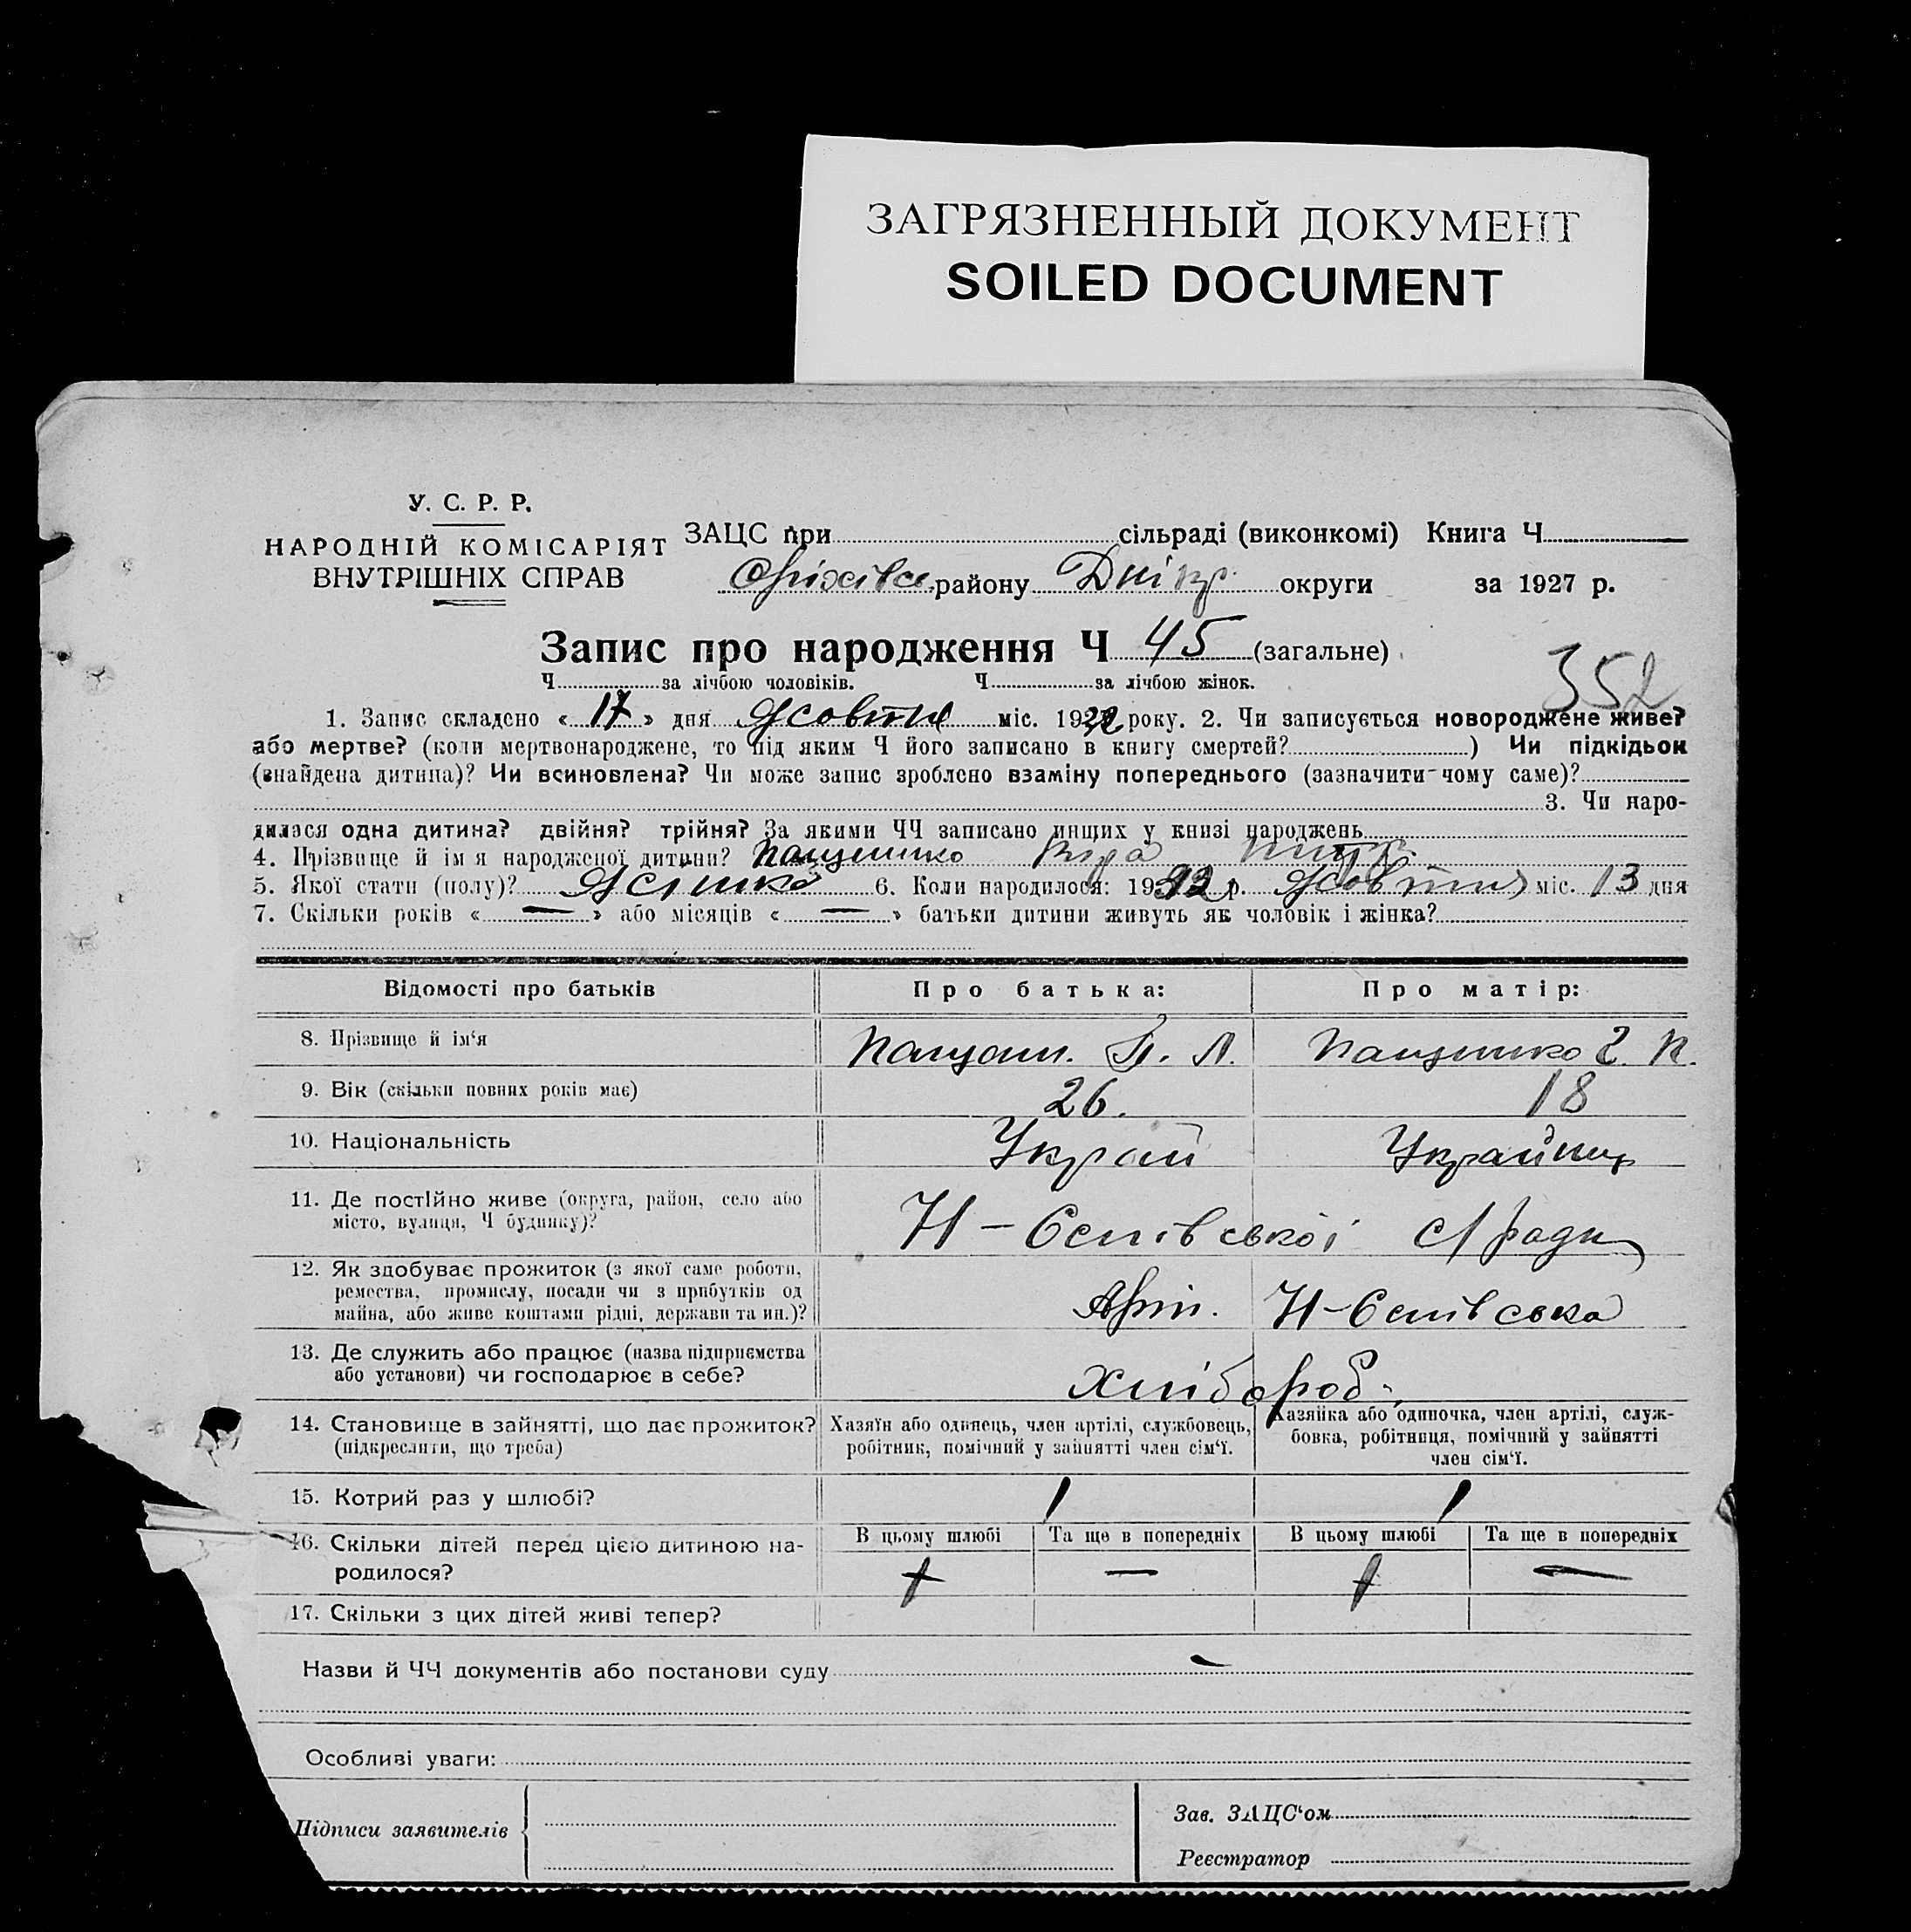 ЗАГРЯЗНЕННЫЙ ДОКУМЕНТ
SOILED DOCUMENT
У. С. Р. Р.
НАРОДНІЙ КОМІСАРІЯТ
ВНУТРІШНІХ СПРАВ
ЗАЦС при сільраді (виконкомі) Книга Ч
району Дніпр округи за 1927 р.
Запис про народження Ч 45 (загальне)
352
Ч за лічбою чоловіків. Ч за лічбою жінок.
1. Запис складено « 17 » дня Жовтня міс. 192 року. 2. Чи записується новороджене живе?
або мертве? (коли мертвонароджене, то під яким Ч його записано в книгу смертей? ) Чи підкідьок
(знайдена дитина)? Чи всиновлена? Чи може запис зроблено взаміну попереднього (зазначити-чому саме)?
3. Чи наро-
дилася одна дитина? двійня? трійня? За якими ЧЧ записано инщих у книзі народжень
4. Прізвище й ім я народженої дитини? Пащенко Віра
5. Якої стати (полу)? Жіночо 6. Коли народилося: 19 р. Жовтня міс. 13 дня
7. Скільки років « — » або місяців « — » батьки дитини живуть як чоловік і жінка?
Відомості про батьків Про батька: Про матір:
8. Прізвище й ім‘я Пащен. П. Л. Пащенко Г. П.
9. Вік (скільки повних років має) 26. 18
10. Національність Украй Украйнц
11. Де постІйно живе (округа, район, село або
місто, вулиця, Ч будинку)?
Н- с/ради
12. Як здобуває прожиток (з якої саме роботи,
ремества, промислу, посади чи з прибутків од
майна, або живе коштами рідні, держави та ин.)?
Арт. Н-
13. Де служить або працює (назва підприємства
або установи) чи господарює в себе?
Хлібороб.
14. Становище в зайнятті, що дає прожиток?
(підкреслити, що треба)
Хазяїн або одинець, член артілі, службовець,
робітник, помічний у зайнятті член сім‘ї.
Хазяйка або одиночка, член артілі, служ-
бовка, робітниця, помічний у зайнятті
член сім‘ї.
15. Котрий раз у шлюбі? 1 1
16. Скільки дітей перед цією дитиною на-
родилося?
В цьому шлюбі Та ще в попередніх В цьому шлюбі Та ще в попередніх
+ — + —
17. Скільки з цих дітей живі тепер?
Назви й ЧЧ документів або постанови суду -
Особливі уваги:
Підписи заявителів
Зав. ЗАЦС‘ом
Реєстратор